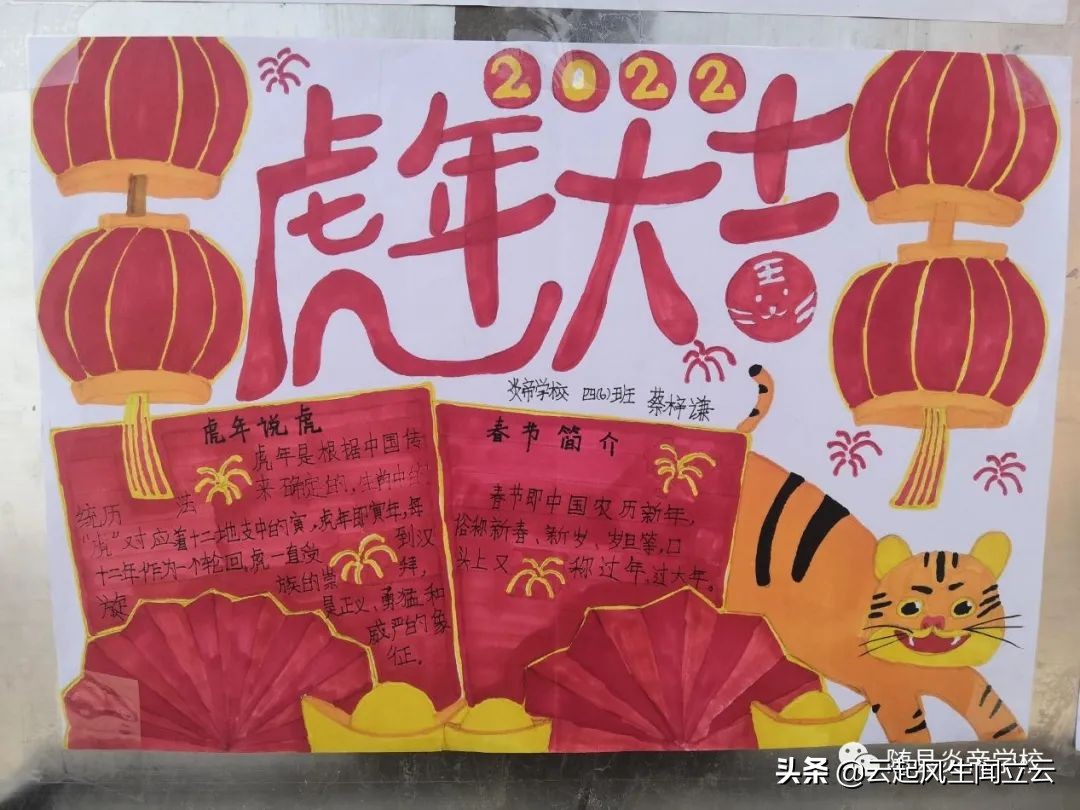 2022
虎年大吉
王
炎帝学校 四(6)班 蔡梓谦
虎年说虎
虎年是根据中国传
统历 法 来确定的,生肖中的
“虎”对应着十二地支中的寅,虎年即寅年,每
十二年作为一个轮回,虎一直受 到汉
族的崇 拜,
是正义、勇猛和
威严的象
征。
春节简介
春节即中国农历新年,
俗称新春、新岁、岁旦等,口
头上又 称过年、过大年。
随县炎帝学校
头条 @云起风生闻立云